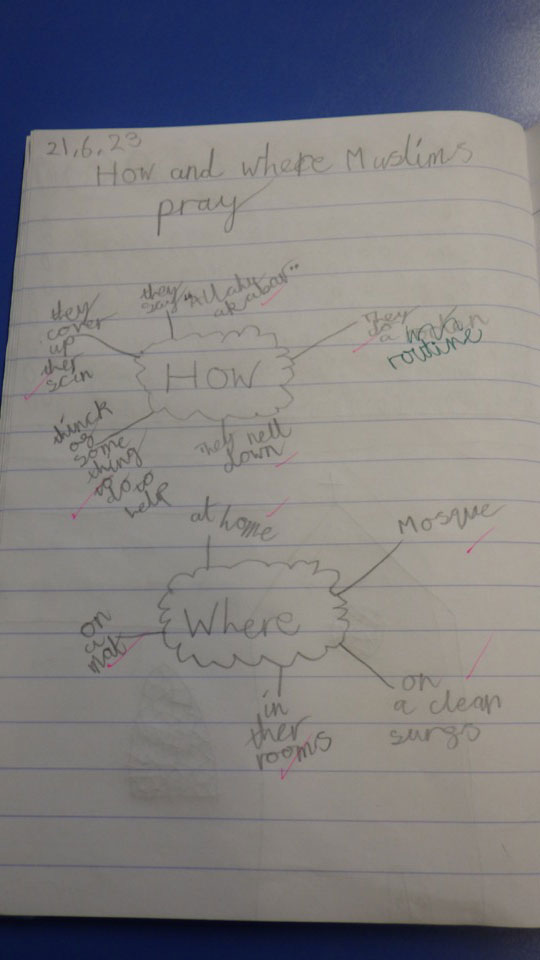 21.6.23
How and where Muslims
pray
they
say "Allahu
akabar"
they
cover
up
ther
scin
They
do
a
routine
HOW
thinck
of
some
thing
to
help
They nell
down
at home
Mosque
Where
on
a
mat
on
a clean
in
ther
rooms